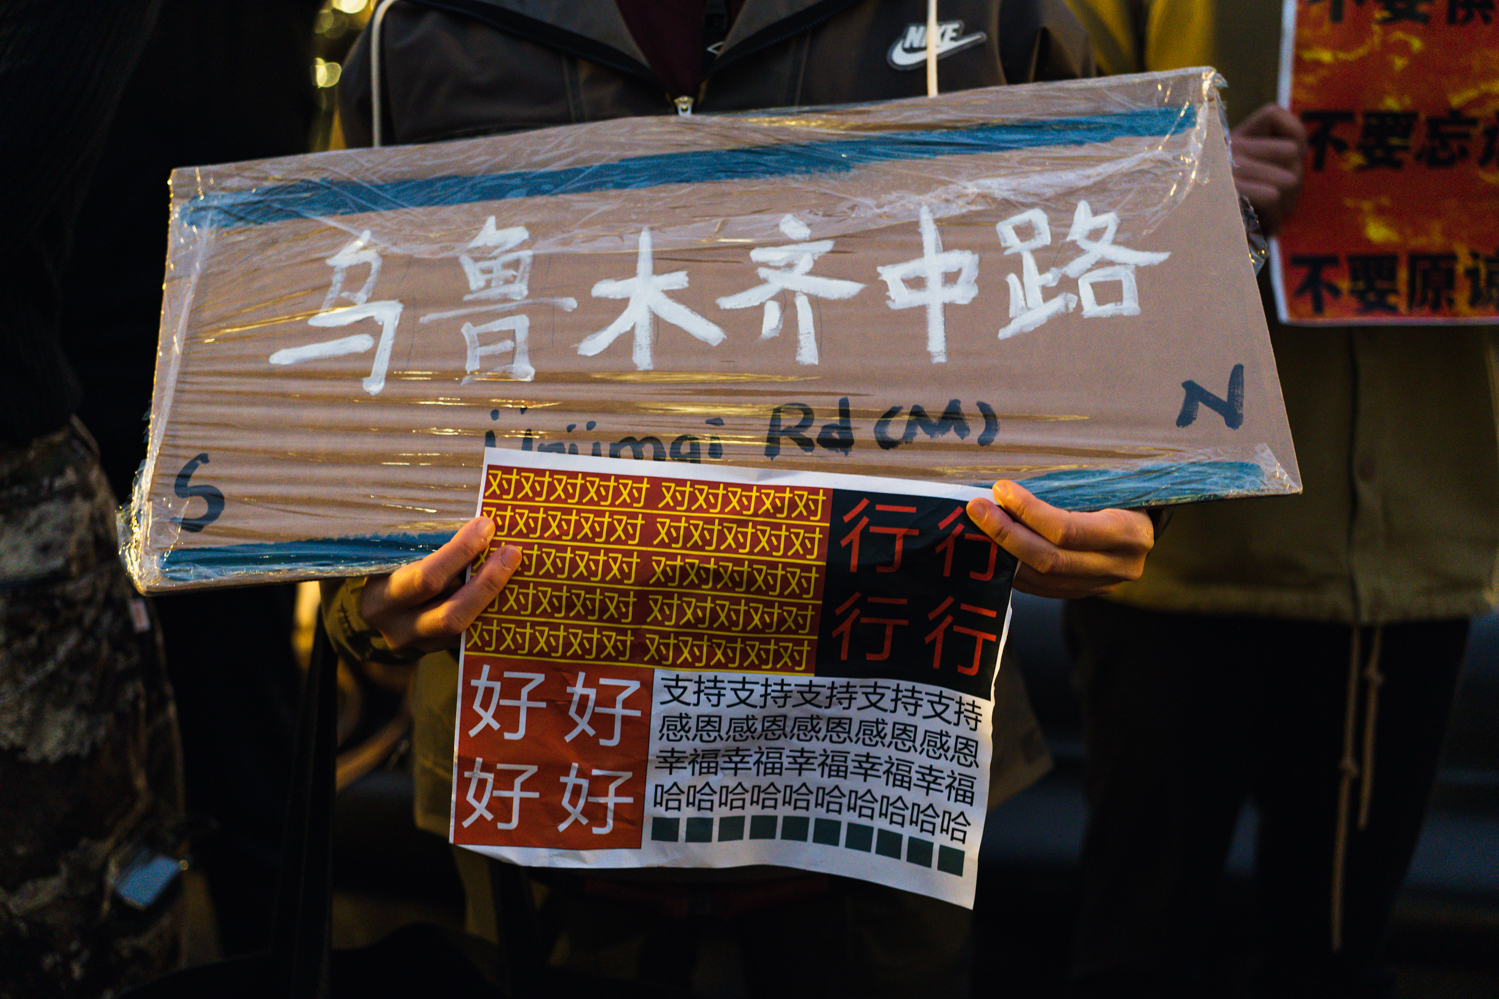 NIKE
不要
不要忘
不要原谅
乌鲁木齐中路
N
Ürümqi Rd (M)
S
对对对对对 对对对对对
对对对对对 对对对对对
对对对对对 对对对对对
对对对对对 对对对对对
对对对对对 对对对对对
行行
行行
好好
好好
支持支持支持支持支持
感恩感恩感恩感恩感恩
幸福幸福幸福幸福幸福
哈哈哈哈哈哈哈哈哈哈